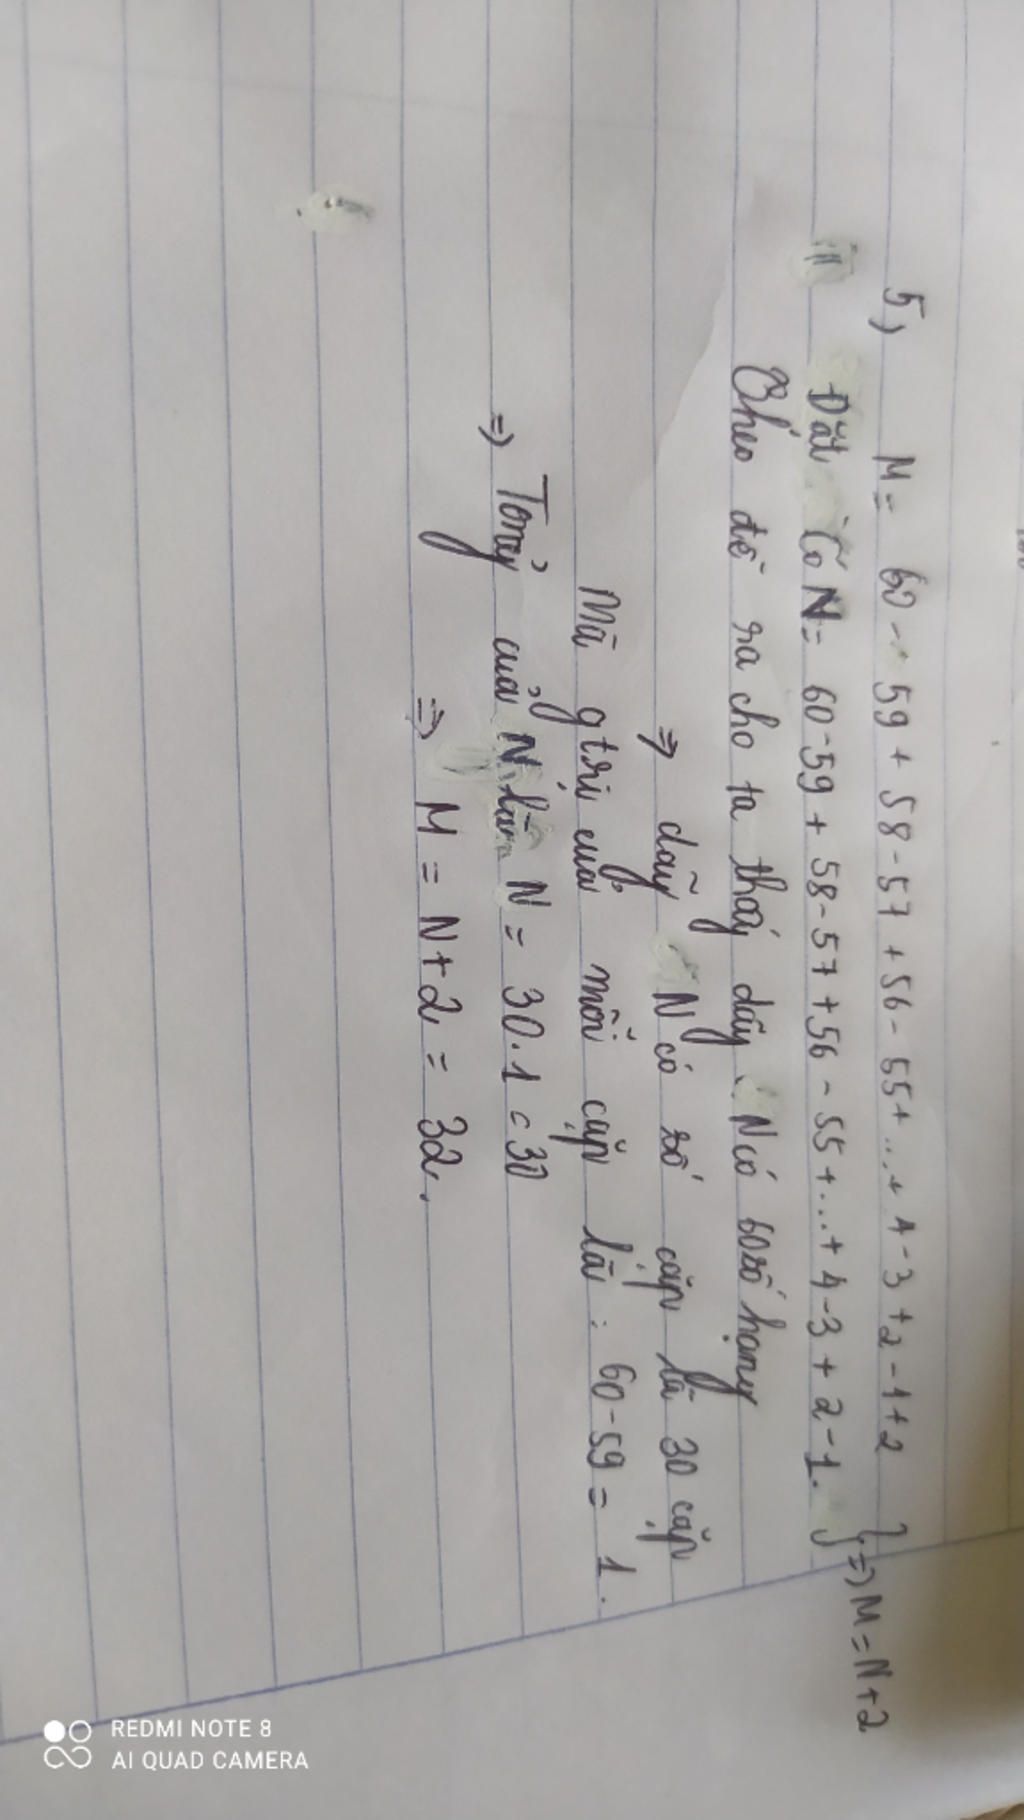 5, M = 60 - 59 + 58 - 57 + 56 - 55 + ... + 4 - 3 + 2 - 1 + 2
Đặt Có N = 60 - 59 + 58 - 57 + 56 - 55 + ... + 4 - 3 + 2 - 1. } => M = N + 2
Theo đề ra cho ta thấy dãy N có 60 số hạng
=> dãy N có số cặp là 30 cặp
Mà gtrị của mỗi cặp là : 60 - 59 = 1.
=> Tổng của N là N = 30 . 1 = 30
=> M = N + 2 = 32.
REDMI NOTE 8
AI QUAD CAMERA